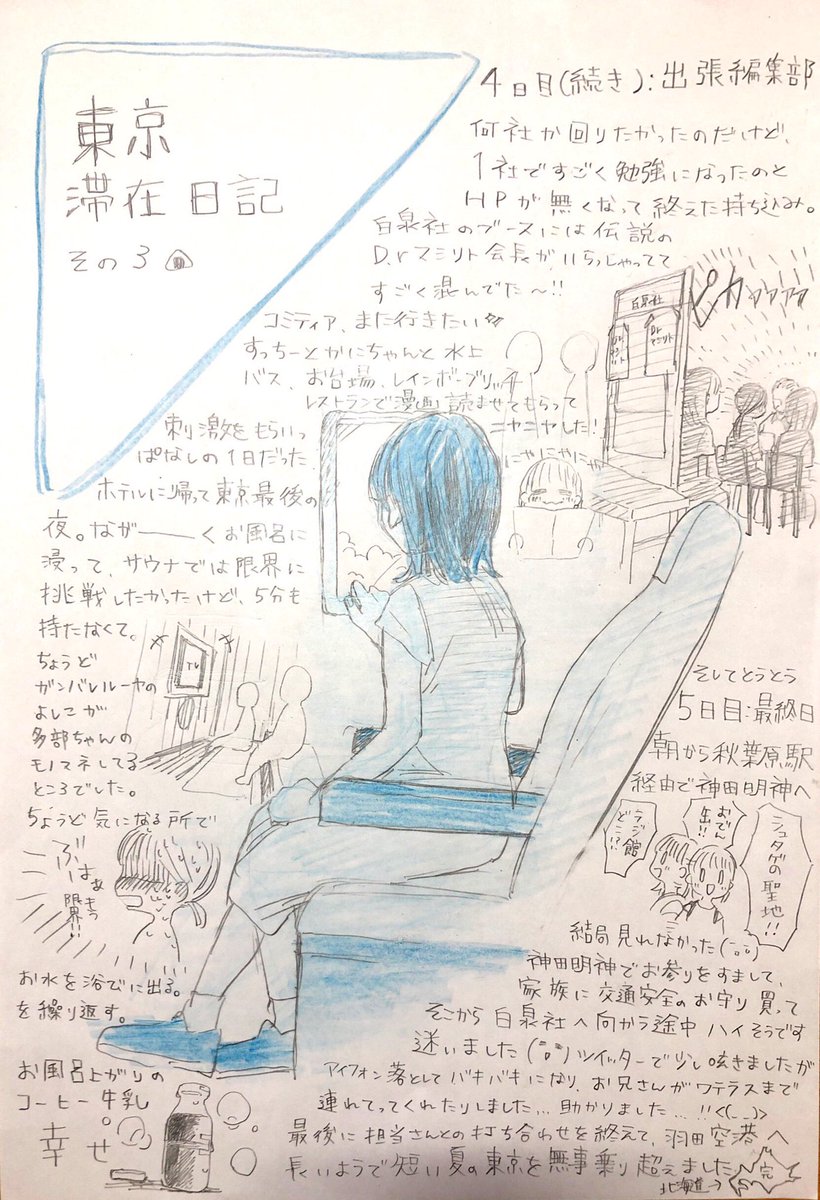 東京
滞在日記
その3
4日目(続き):出張編集部
何社か回りたかったのだけど、
1社ですごく勉強になったのと
HPが無くなって終えた持ち込み。
白泉社のブースには伝説の
D.rマシリト会長がいらっしゃってて
すごく混んでた〜!!
コミティア、また行きたい
すっちーとかにちゃんと水上
バス、お台場、レインボーブリッヂ
レストランで漫画読ませてもらって
ニヤニヤした!
にやにやにや
白泉社
Dr.マシリト
ピカァァァァ
刺激をもらいっ
ぱなしの1日だった。
ホテルに帰って東京最後の
夜。なが──くお風呂に
浸って、サウナでは限界に
挑戦したかったけど、5分も
持たなくて。
ちょうど
ガンバレルーヤの
よしこが
多部ちゃんの
モノマネしてる
ところでした。
ちょうど気になる所で
TV
ぶはぁ
もう
限界!!
お水を浴びに出る。
を繰り返す。
お風呂上がりの
コーヒー牛乳。
幸せ
そしてとうとう
5日目:最終日
朝から秋葉原駅
経由で神田明神へ
シュタゲの聖地!!
おでん
缶!!
ラジ館
どこ!?
結局見れなかった
神田明神でお参りをすまして、
家族に交通安全のお守り買って
そこから白泉社へ向かう途中ハイそうです
迷いました ツイッターで少し呟きましたが
アイフォン落としてバキバキになり、お兄さんがワテラスまで
連れてってくれたりしました…助かりました…!!<(_ _)>
最後に担当さんとの打ち合わせを終えて、羽田空港へ
長いようで短い夏の東京を無事乗り超えました
北海道→
完